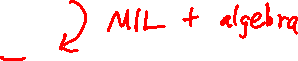 MIL + algebra